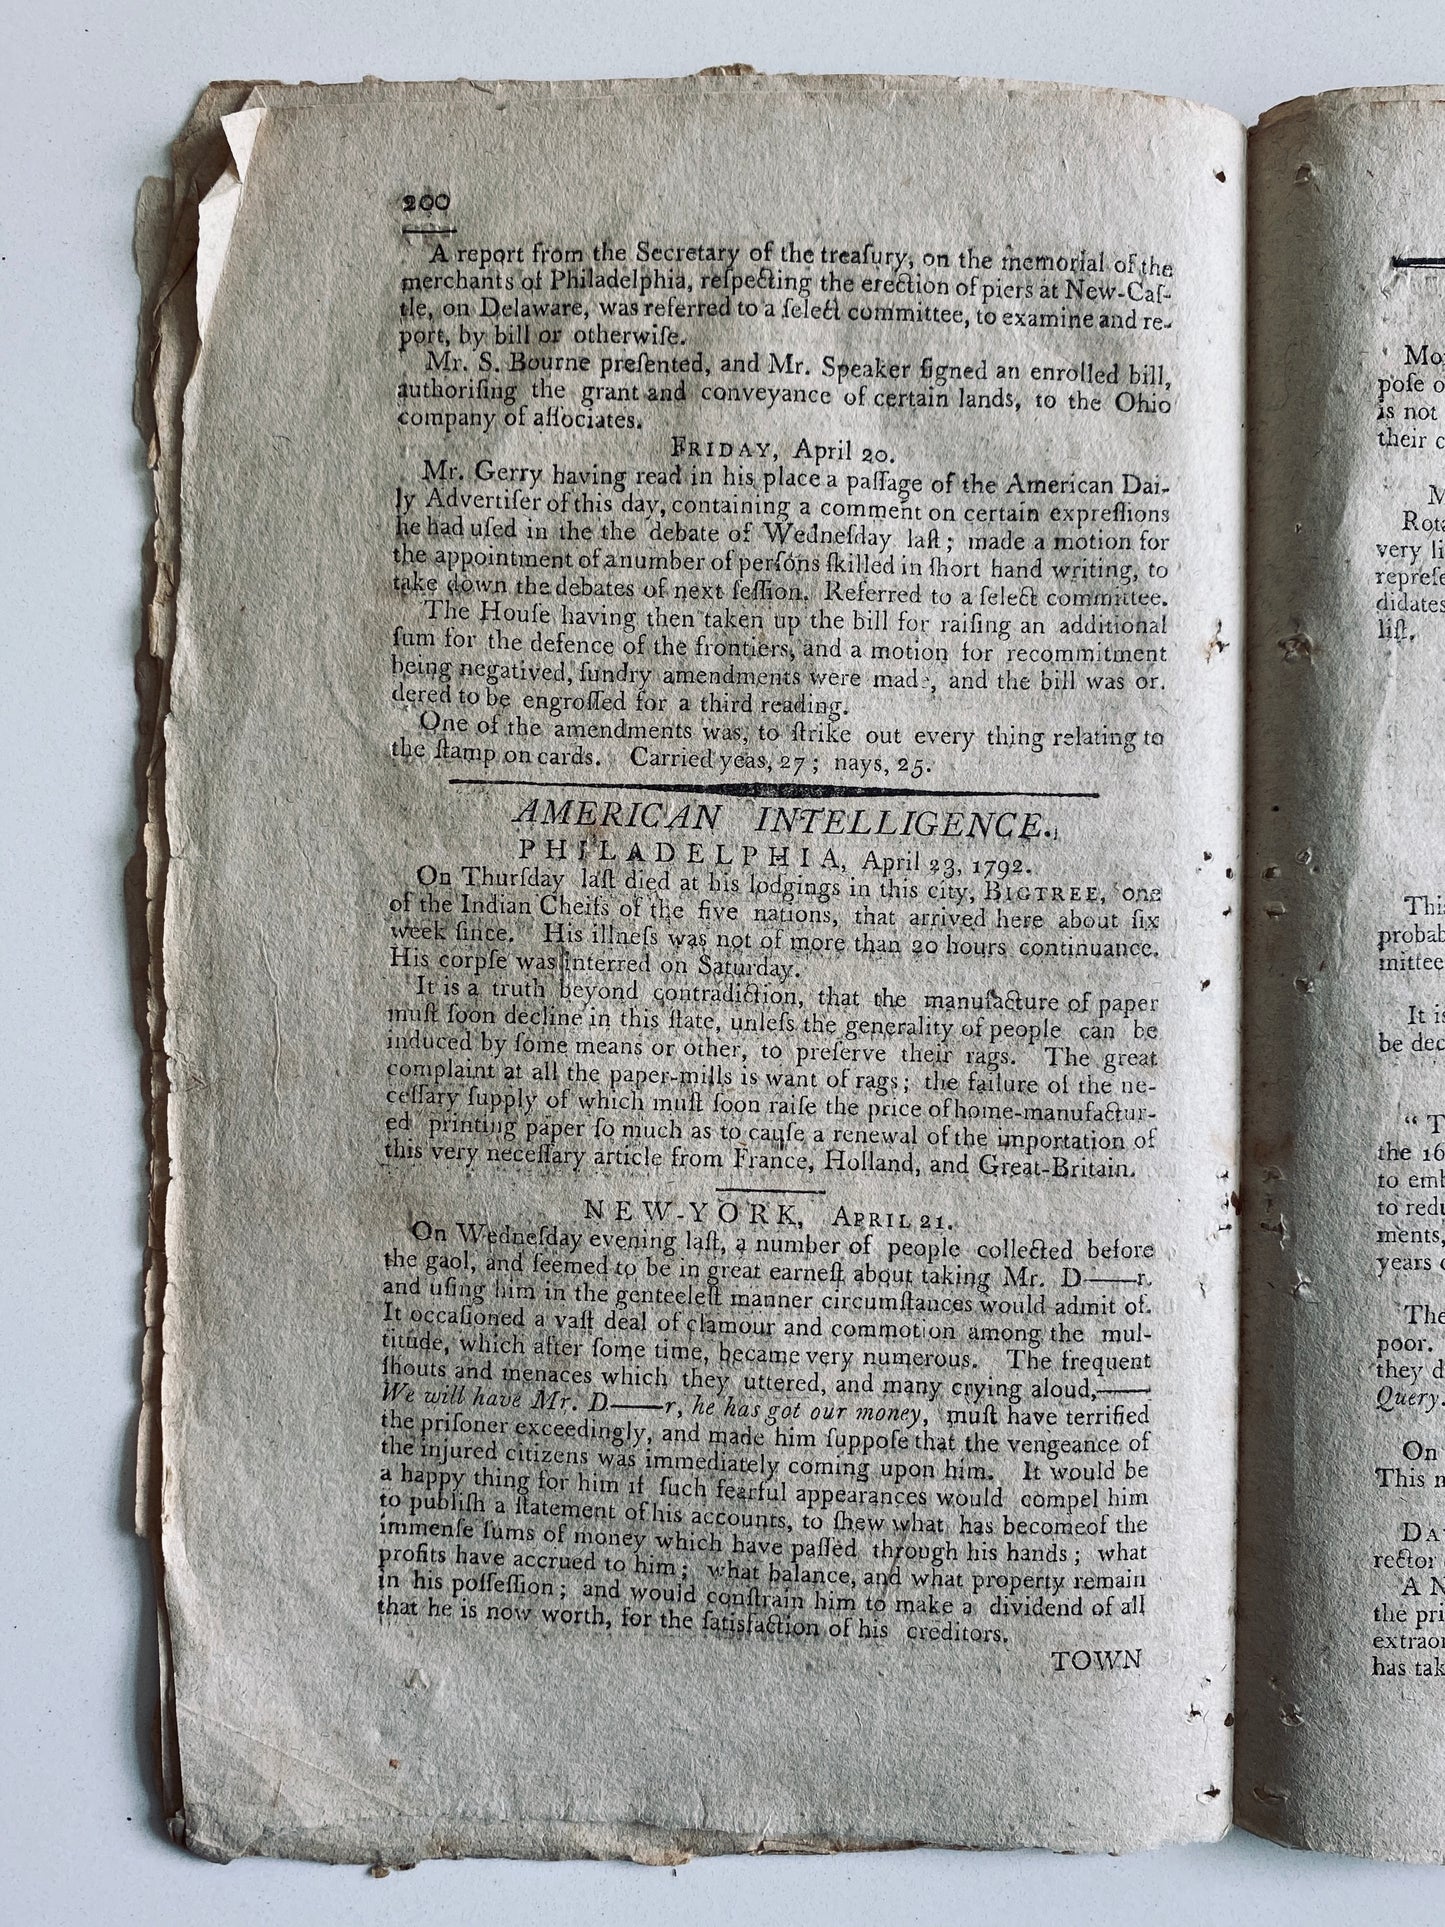 200
A report from the Secretary of the treaſury, on the memorial of the
merchants of Philadelphia, reſpecting the erection of piers at New-Caſ-
tle, on Delaware, was referred to a ſelect committee, to examine and re-
port, by bill or otherwiſe.
Mr. S. Bourne preſented, and Mr. Speaker ſigned an enrolled bill,
authoriſing the grant and conveyance of certain lands, to the Ohio
company of aſſociates.
FRIDAY, April 20.
Mr. Gerry having read in his place a paſſage of the American Dai-
ly Advertiſer of this day, containing a comment on certain expreſſions
he had uſed in the the debate of Wedneſday laſt; made a motion for
the appointment of a number of perſons ſkilled in ſhort hand writing, to
take down the debates of next ſeſſion. Referred to a ſelect committee.
The Houſe having then taken up the bill for raiſing an additional
ſum for the defence of the frontiers, and a motion for recommitment
being negatived, ſundry amendments were made, and the bill was or.
dered to be engroſſed for a third reading.
One of the amendments was, to ſtrike out every thing relating to
the ſtamp on cards. Carried yeas, 27; nays, 25.
AMERICAN INTELLIGENCE.
PHILADELPHIA, April 23, 1792.
On Thurſday laſt died at his lodgings in this city, BIGTREE, one
of the Indian Cheifs of the five nations, that arrived here about ſix
week ſince. His illneſs was not of more than 20 hours continuance.
His corpſe was interred on Saturday.
It is a truth beyond contradiction, that the manufacture of paper
muſt ſoon decline in this ſtate, unleſs the generality of people can be
induced by ſome means or other, to preſerve their rags. The great
complaint at all the paper-mills is want of rags; the failure of the ne-
ceſſary ſupply of which muſt ſoon raiſe the price of home-manufactur-
ed printing paper ſo much as to cauſe a renewal of the importation of
this very neceſſary article from France, Holland, and Great-Britain.
NEW-YORK, APRIL 21.
On Wedneſday evening laſt, a number of people collected before
the gaol, and ſeemed to be in great earneſt about taking Mr. D——r,
and uſing him in the genteeleſt manner circumſtances would admit of.
It occaſioned a vaſt deal of clamour and commotion among the mul-
titude, which after ſome time, became very numerous. The frequent
ſhouts and menaces which they uttered, and many crying aloud,——
We will have Mr. D——r, he has got our money, muſt have terrified
the priſoner exceedingly, and made him ſuppoſe that the vengeance of
the injured citizens was immediately coming upon him. It would be
a happy thing for him if ſuch fearful appearances would compel him
to publiſh a ſtatement of his accounts, to ſhew what has becomeof the
immenſe ſums of money which have paſſed through his hands; what
profits have accrued to him; what balance, and what property remain
in his poſſeſſion; and would conſtrain him to make a dividend of all
that he is now worth, for the ſatisfaction of his creditors.
TOWN
poſe
is not
their
very
liſt.
It is
be
the
to
years
The
poor.
they
Query.
On
This
A
the
has